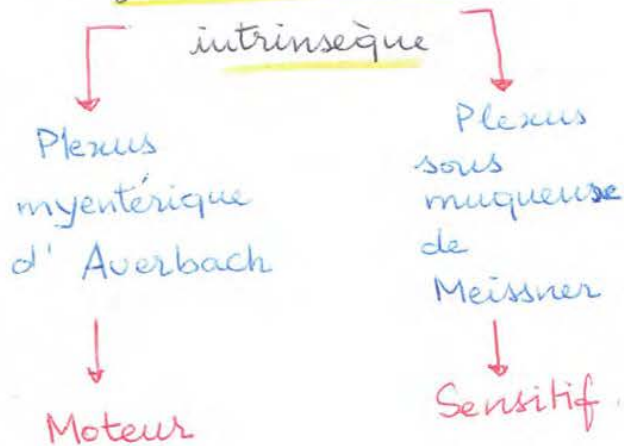 intrinsèque
Plexus
myentérique
d' Averbach
Moteur
Plexus
sous
muqueuse
de
Meissner
Sensitif.